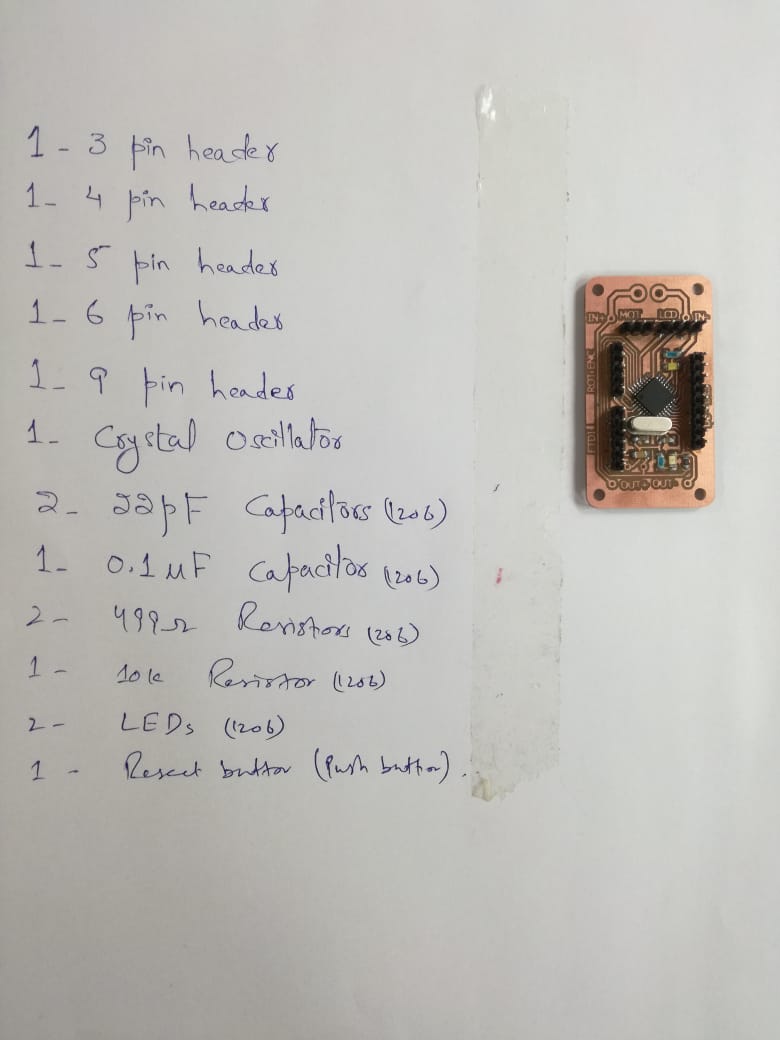 1 - 3 pin header
1 - 4 pin header
1 - 5 pin header
1 - 6 pin header
1 - 9 pin header
1 - Crystal Oscillator
2 - 22pF Capacitors (1206)
1 - 0.1 µF Capacitor (1206)
2 - 499Ω Resistors (1206)
1 - 10k Resistor (1206)
2 - LEDs (1206)
1 - Reset button (Push button).
IN+ MOT LCD IN-
ROT-ENC
FTDI
OUT+ OUT-